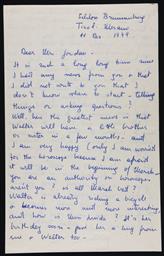 Schloss Brunnenburg
Tirol. Merano
11 Dec 1949.
Dear Mrs Jordan –
It is such a long long time since
I had any news from you & that
I did not write to you that I
don't know where to start – telling
things or asking questions!
Well, here the greatest news is that
Walter will have a little brother
or sister in a few months – and
I am very happy (only I am worried
for the horoscope because I am afraid
it will be in the beginning of March.
You are an authority on horoscopes
aren't you? is all March bad?
Walter is already riding a bicycle
& becomes more and more interesting.
and how is
birthday soon – give her a hug from
me & Walter too –